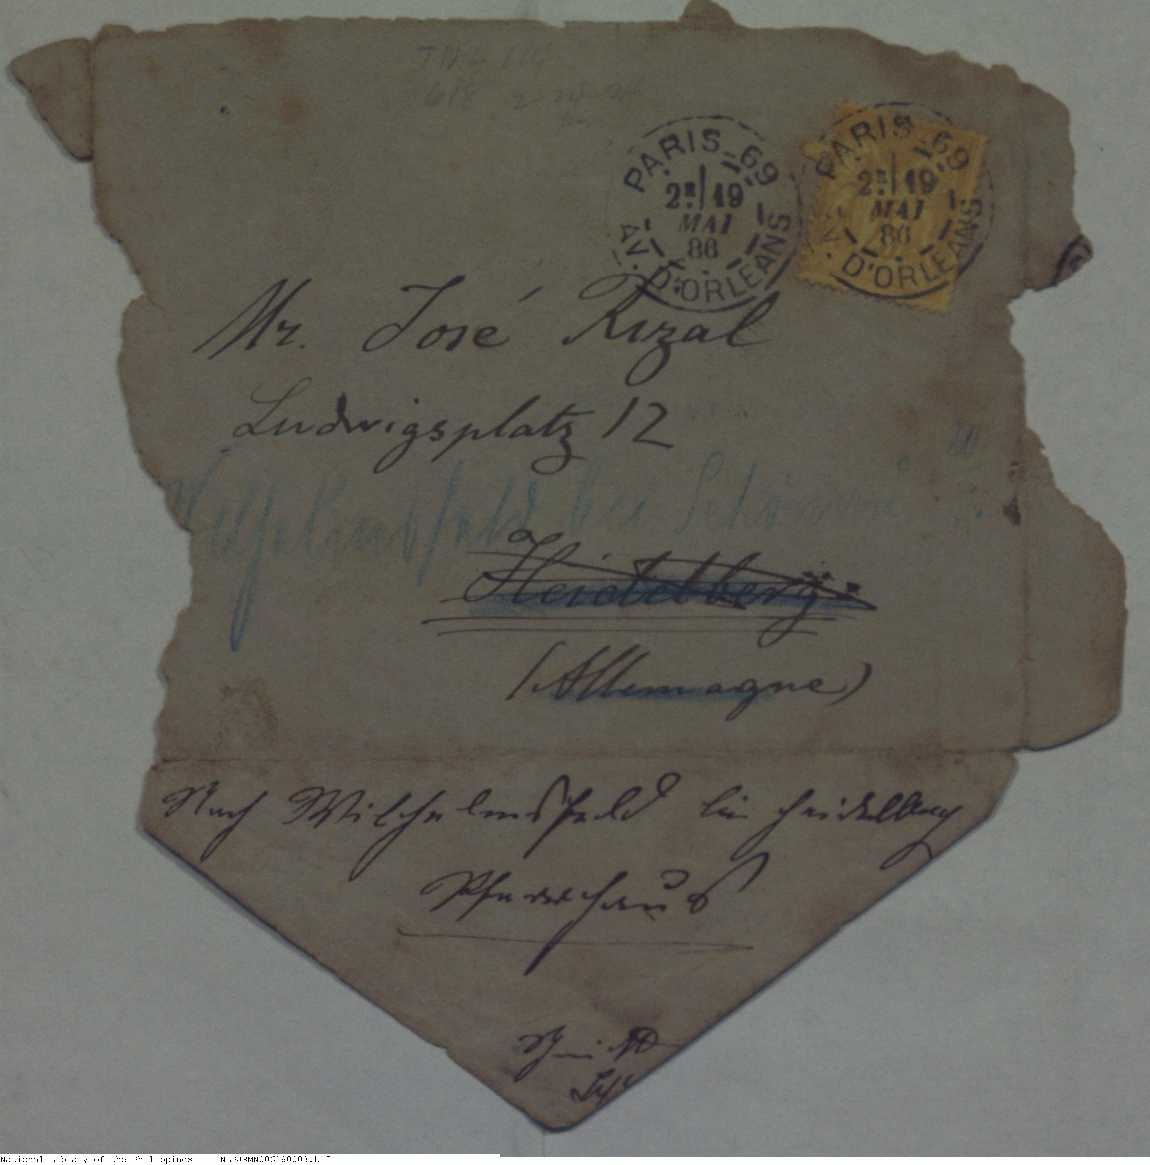 618
PARIS_69
2E 19
MAI
86
AV. D'ORLEANS
PARIS_69
2E 19
MAI
86
AV. D'ORLEANS
Mr. José Rizal
Ludwigsplatz 12
Wilhelmsfeld bei Schönau
Heidelberg
(Allemagne)
Nach Wilhelmsfeld bei Heidelberg
Pfarrhaus
National Library of the Philippines